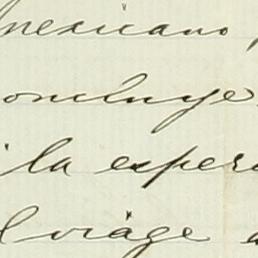 mexicano
oncluye
la esper
l viage a